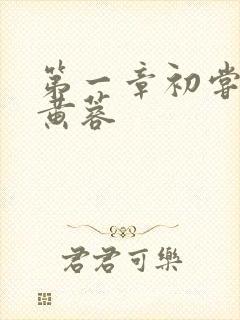 第一章初嘗
黄蓉
君君可樂